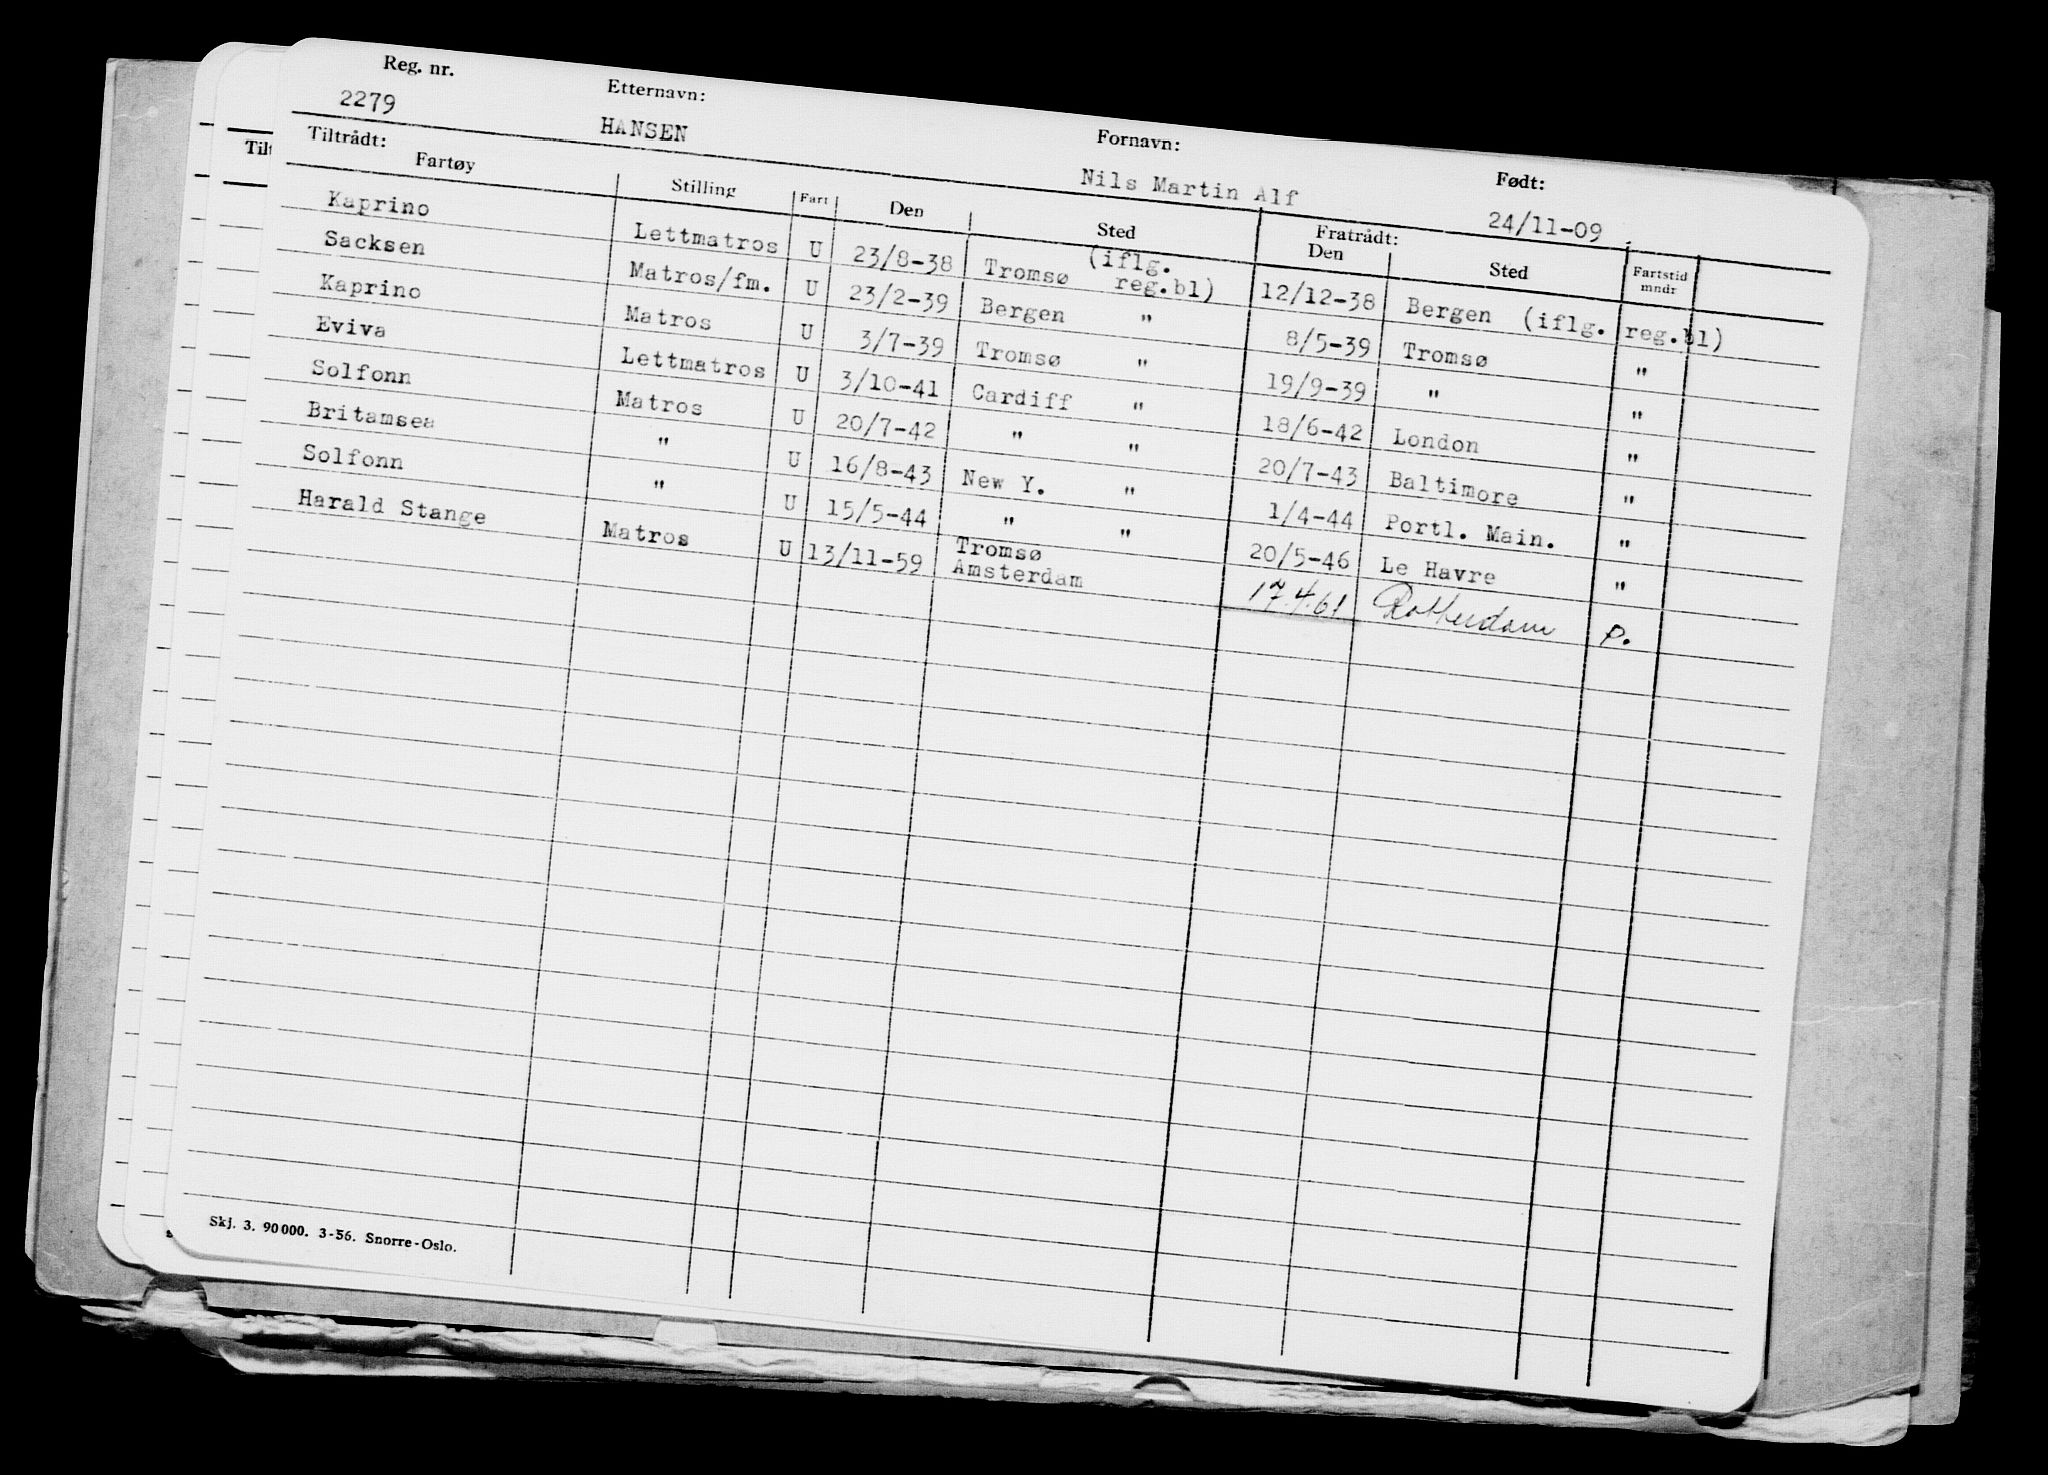 Reg. nr. Etternavn: Fornavn: Født:
2279 HANSEN Nils Martin Alf 24/11-09
Tiltrådt: Fratrådt:
Fartøy Stilling Fart Den Sted Den Sted Fartstid mndr
Kaprino Lettmatros U 23/8-38 Tromsø (iflg. reg.bl) 12/12-38 Bergen (iflg. reg.bl)
Sacksen Matros/fm. U 23/2-39 Bergen " 8/5-39 Tromsø "
Kaprino Matros U 3/7-39 Tromsø " 19/9-39 " "
Eviva Lettmatros U 3/10-41 Cardiff " 18/6-42 London "
Solfonn Matros U 20/7-42 " " 20/7-43 Baltimore "
Britamsea " U 16/8-43 New Y. " 1/4-44 Portl. Main. "
Solfonn " U 15/5-44 " " 20/5-46 Le Havre "
Harald Stange Matros U 13/11-59 Tromsø Amsterdam 17.4.61 Rotterdam P.
Skj. 3. 90 000. 3-56. Snorre-Oslo.
Tilt